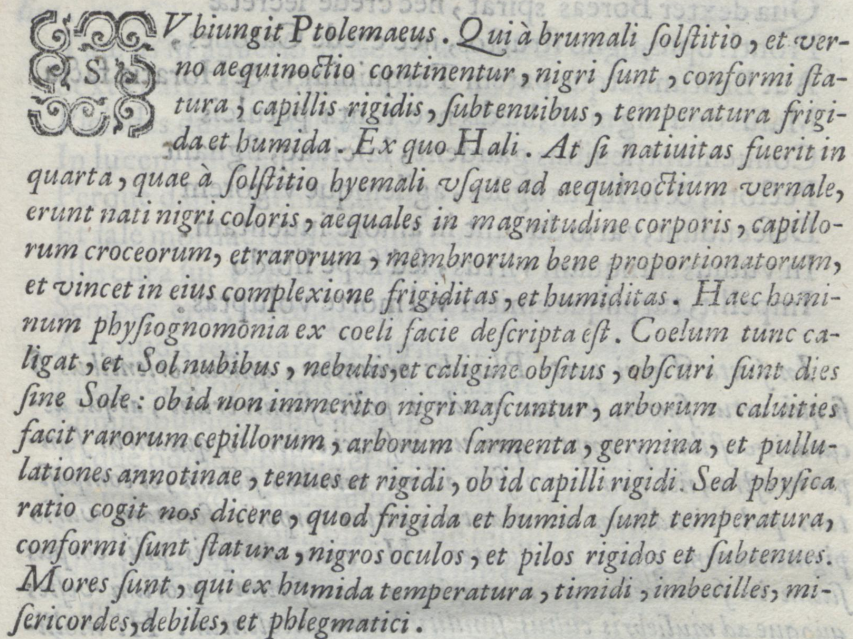 SVbiungit Ptolemaeus. Qui à brumali ſolſtitio, et ver-
no aequinoctio continentur, nigri ſunt, conformi ſta-
tura, capillis rigidis, ſubtenuibus, temperatura frigi-
da et humida. Ex quo Hali. At ſi natiuitas fuerit in
quarta, quae à ſolſtitio hyemali vſque ad aequinoctium vernale,
erunt nati nigri coloris, aequales in magnitudine corporis, capillo-
rum croceorum, et rarorum, membrorum bene proportionatorum,
et vincet in eius complexione frigiditas, et humiditas. Haec homi-
num phyſiognomonia ex coeli facie deſcripta eſt. Coelum tunc ca-
ligat, et Sol nubibus, nebulis, et caligine obſitus, obſcuri ſunt dies
ſine Sole: ob id non immerito nigri naſcuntur, arborum caluities
facit rarorum cepillorum, arborum ſarmenta, germina, et pullu-
lationes annotinae, tenues et rigidi, ob id capilli rigidi. Sed phyſica
ratio cogit nos dicere, quod frigida et humida ſunt temperatura,
conformi ſunt ſtatura, nigros oculos, et pilos rigidos et ſubtenues.
Mores ſunt, qui ex humida temperatura, timidi, imbecilles, mi-
ſericordes, debiles, et phlegmatici.